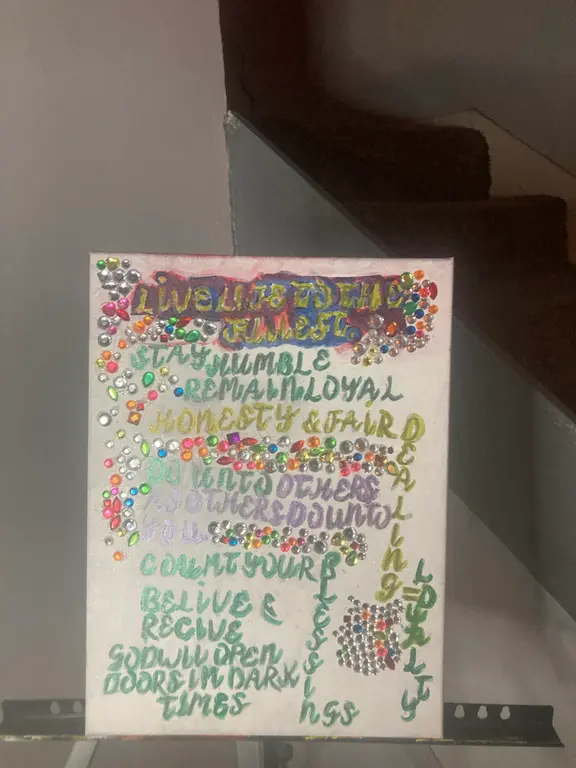 LIVE LIFE TO THE
FULLEST.
STAY HUMBLE
REMAIN LOYAL
HONESTY & FAIR DEALING = LOYALTY
DO UNTO OTHERS
AS OTHERS DO UNTO
YOU
COUNT YOUR BLESSINGS
BELIVE &
RECIVE
GOD WILL OPEN
DOORS IN DARK
TIMES